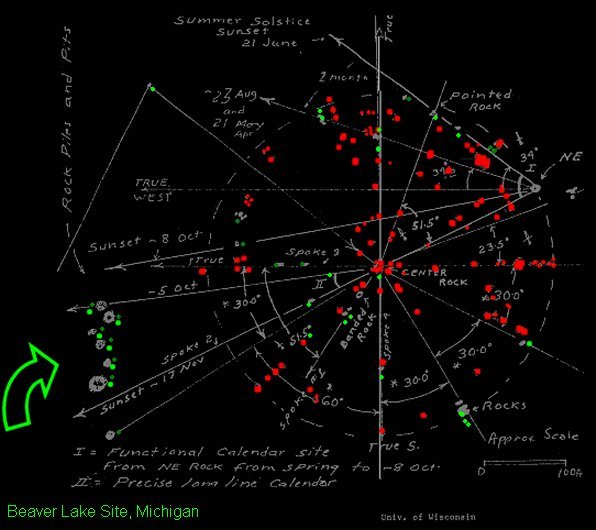 Summer Solstice
Sunset
21 June
True
Rock Piles and Pits
2 month
~23 Aug
and
21 May
Apr
Pointed
Rock
34°
I
NE
TRUE
WEST
51.5°
Sunset ~8 Oct
True
Spoke 3
23.5°
CENTER
ROCK
~5 Oct
II
* 30.0°
* 30.0°
Banded
Rock
Spoke 1
51.5°
Spoke 2
30.0°
*
Sunset ~17 Nov
* 30.0°
60°
Rocks
True S.
Approx Scale
0
100ft
I = Functional Calendar site
from NE Rock from spring to ~8 Oct.
II = Precise long line Calendar
Beaver Lake Site, Michigan
Univ. of Wisconsin